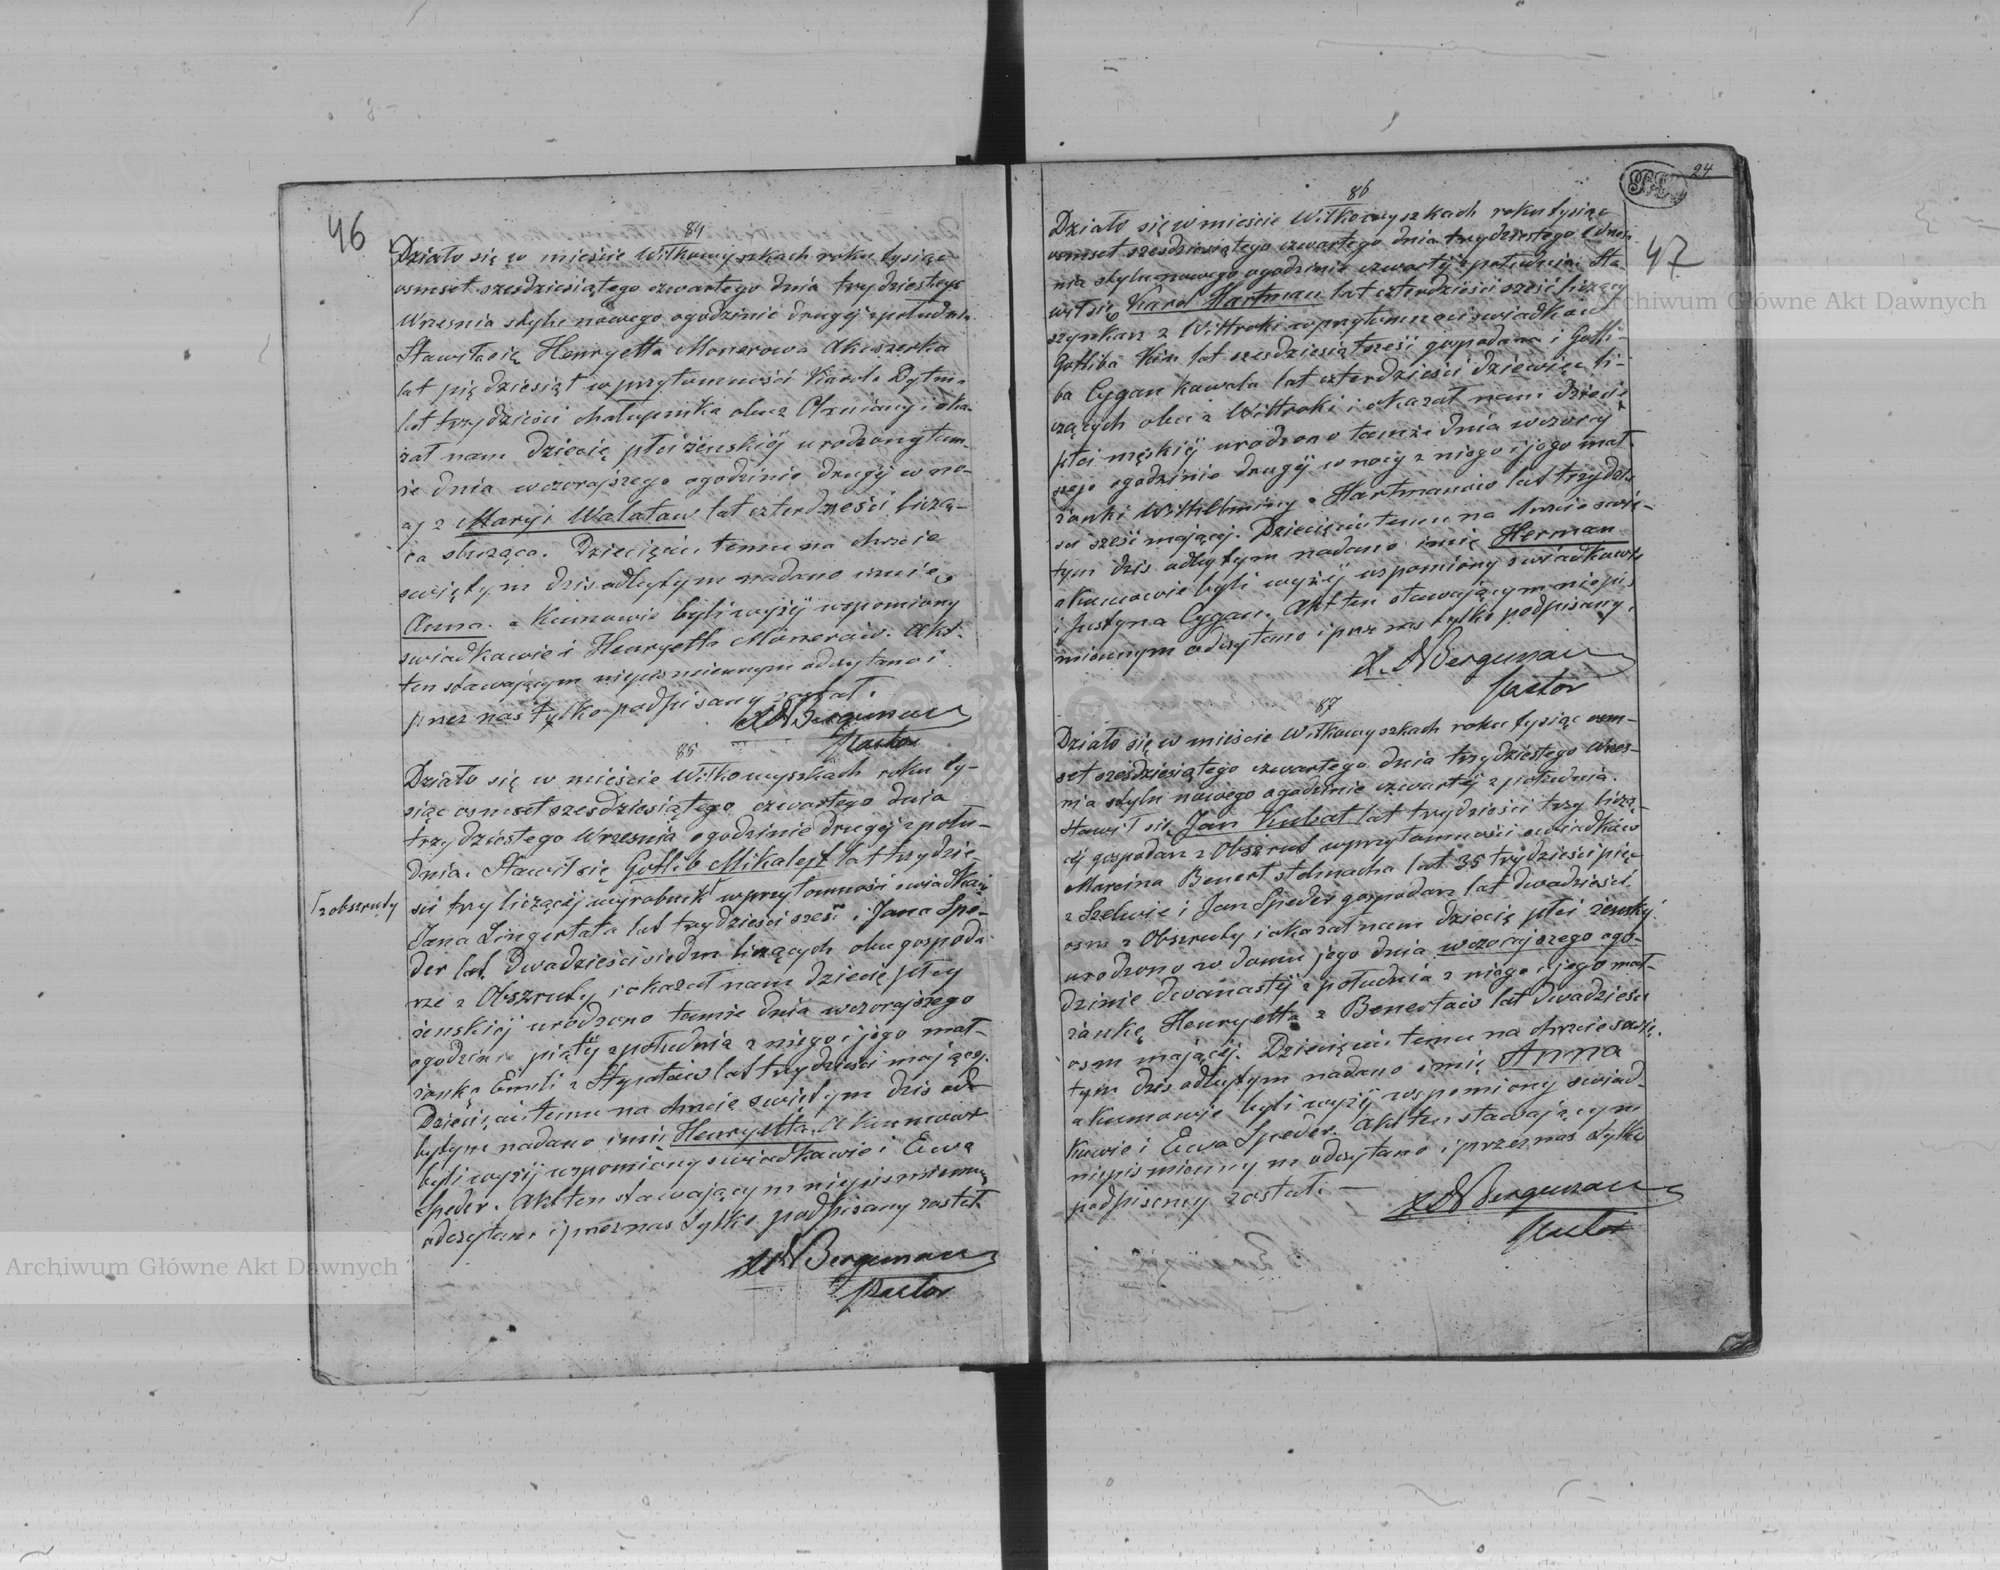 46
84
Działo się w mieście Wiłkowyszkach roku tysiąc
osmset szesdziesiątego czwartego dnia trzydziestego
Wrzesnia stylu nowego ogodzinie drugiej zpołudnia
Stawiła się Henryetta Monerowa Akuszerka
lat pięćdziesiąt wprzytomności Karola Dytm
lat trzydzieści chałupnika obu z i oka-
zał nam Dziecię płci żeńskiéj urodzone tam-
że dnia wczorajszego ogodzinie drugiéj w no-
cy z Maryi Walatow lat czterdzieści liczą-
ca służąca. Dziecięciu temu na chrzcie
swiętym dzis odbytym nadano imie
Anna. a Kumowie byli wyżéj wspomiony
swiadkowie i Henryetta Monerow. Akt
ten stawającym niepismiennym odczytano i
przez nas tylko podpisany został.
Bergmann
Pastor
85
Działo się w mieście Wiłkowyszkach roku ty-
siąc osmset szesdziesiątego czwartego dnia
trzydziestego Wrzesnia ogodzinie drugiéj zpołu-
dnia. Stawił się Gotlib Mikaleyt lat trzydzie-
ści trzy liczący wyrobnik wprzytomności swiadków
z obszruty
Jana Lingertata lat trzydzieści szesc i Jana Spe-
der lat dwadzieściasiedm liczących obu gospoda
rze z Obszruty i okazał nam dziecię płcy
żenskiéj urodzone tamże dnia wczorajszego
ogodzinie piątéj zpołudnia z niego i jego mał-
żanką Emili z Stypołaiow lat trzydzieści mającej.
Dziecięciu temu na chrzcie swiętym dzis od-
bytym nadano imie Henryetta. A kumowie
byli wyżéj wspomiony swiadkowie i Ewa
Speder. Akt ten stawającym niepismiennym
odczytano i przez nas tylko podpisany został.
Bergmann
Pastor
24
47
86
Działo się w mieście Wiłkowyszkach roku tysiąc
osmset szesdziesiątego czwartego dnia trzydziestego Wrzes
nia stylu nowego ogodzinie czwartéj zpołudnia. Sta
wił się Karol Hartman lat czterdzieści sześć liczący
szynkarz z Wittroki wprzytomności swiadków
Gotliba Kin lat szesdziesiąt sześć gospodarza i Gotli-
ba Cygan kowala lat czterdzieści dziewięć li-
czących obu z Wittroki i okazał nam dziecię
płci męskiéj urodzone tamże dnia wczoraj
szego ogodzinie drugiéj w nocy z niego i jego mał-
żonki Willhelminy z Hartmanow lat trzydzie
sci sześć mającéj. Dziecięciu temu na chrzcie swię-
tym dzis odbytym nadano imię Herman
a Kumowie byli wyżéj wspomiony swiadkowie
i Justyna Cygan. Akt ten stawającym niepis
miennym odczytano i przez nas tylko podpisany.
Bergmann
Pastor
87
Działo się w mieście Wiłkowyszkach roku tysiąc osm-
set szesdziesiątego czwartego dnia trzydziestego Wrzes-
nia stylu nowego ogodzinie czwartéj zpołudnia.
Stawił się Jan Kubat lat trzydzieści trzy liczą-
cy gospodarz z Obszrut wprzytomności swiadków
Marcina Benert stelmacha lat 35 trzydzieści pięć
z Szelwie i Jan Speder gospodarz lat dwadzieścia
osm z Obszruty i okazał nam dziecię płci żenskiéj
urodzone w domu jego dnia wczorajszego ogo-
dzinie dwanastéj zpołudnia z niego i jego mał-
żanką Henryetta z Benertow lat dwadzieścia
osm mającéj. Dziecięciu temu na chrzcie swię-
tym dzis odbytym nadano imię Anna
a Kumowie byli wyżéj wspomiony swiad-
kowie i Ewa Speder. Akt ten stawającym
niepismiennym odczytano i przez nas tylko
podpisany został. —
Bergmann
Pastor
Archiwum Główne Akt Dawnych
Archiwum Główne Akt Dawnych